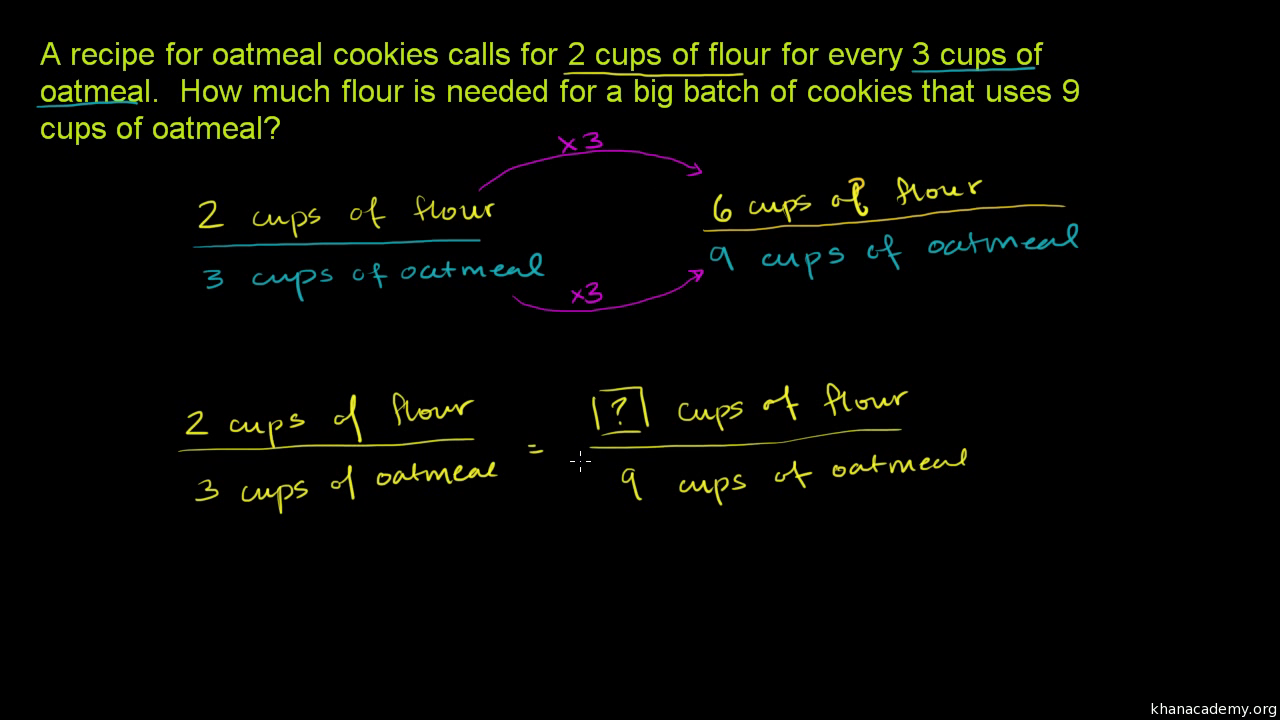 A recipe for oatmeal cookies calls for 2 cups of flour for every 3 cups of
oatmeal. How much flour is needed for a big batch of cookies that uses 9
cups of oatmeal?
x3
2 cups of flour
6 cups of flour
3 cups of oatmeal
9 cups of oatmeal
x3
2 cups of flour
? cups of flour
=
3 cups of oatmeal
9 cups of oatmeal
khanacademy.org